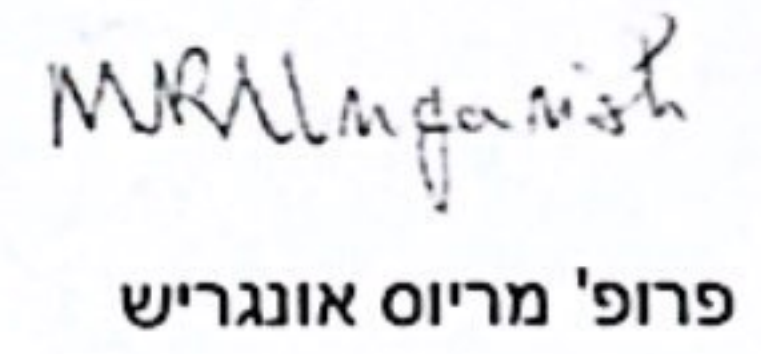 MRUngarish
פרופ' מריוס אונגריש